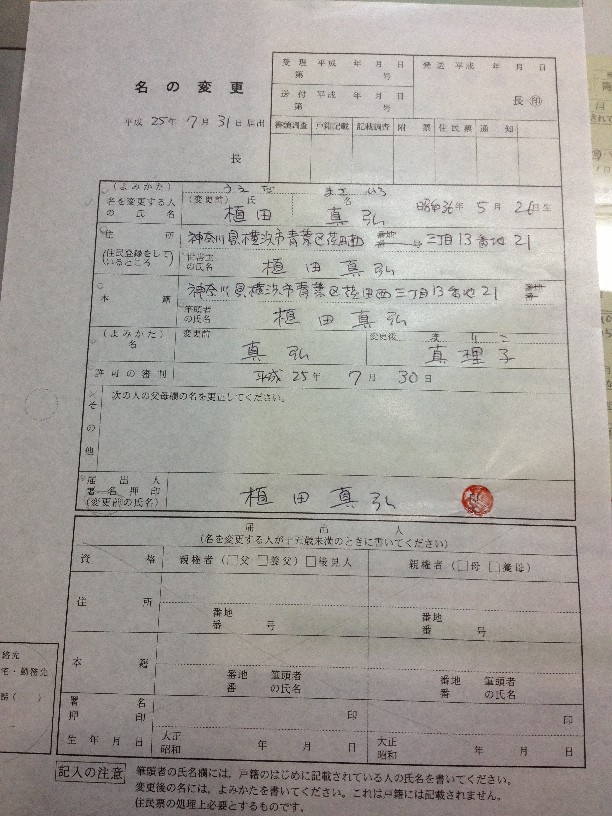 名の変更
平成 25年 7月 31日届出
長
受理 平成 年 月 日
第 号
送付 平成 年 月 日
第 号
発送 平成 年 月 日
長 印
書類調査 戸籍記載 記載調査 附票 住民票 通知
(よみかた) うえだ まさひろ
名を変更する人の氏名 (変更前) 氏 名
植田 真弘 昭和36年 5月 26日生
住所 神奈川県横浜市青葉区荏田西 番地 号 三丁目13番地21
(住民登録をしているところ) 世帯主の氏名 植田真弘
本籍 神奈川県横浜市青葉区荏田西三丁目13番地21
筆頭者の氏名 植田真弘
(よみかた) 変更前 変更後 まりこ
名 真弘 真理子
許可の審判 平成 25年 7月 30日
その他 次の人の父母欄の名を更正してください。
届出人
署名押印 植田真弘
(変更前の氏名)
届出人
(名を変更する人が十五歳未満のときに書いてください)
資格 親権者(□父 □養父)□後見人 親権者(□母 □養母)
住所
番地 番地
番 号 番 号
本籍
番地 筆頭者 番地 筆頭者
番 の氏名 番 の氏名
署名
押印 印 印
生年月日 大正 昭和 年 月 日 大正 昭和 年 月 日
記入の注意
筆頭者の氏名欄には,戸籍のはじめに記載されている人の氏名を書いてください。
変更後の名には,よみかたを書いてください。これは戸籍には記載されません。
住民票の処理上必要とするものです。
絡先
宅・勤務先